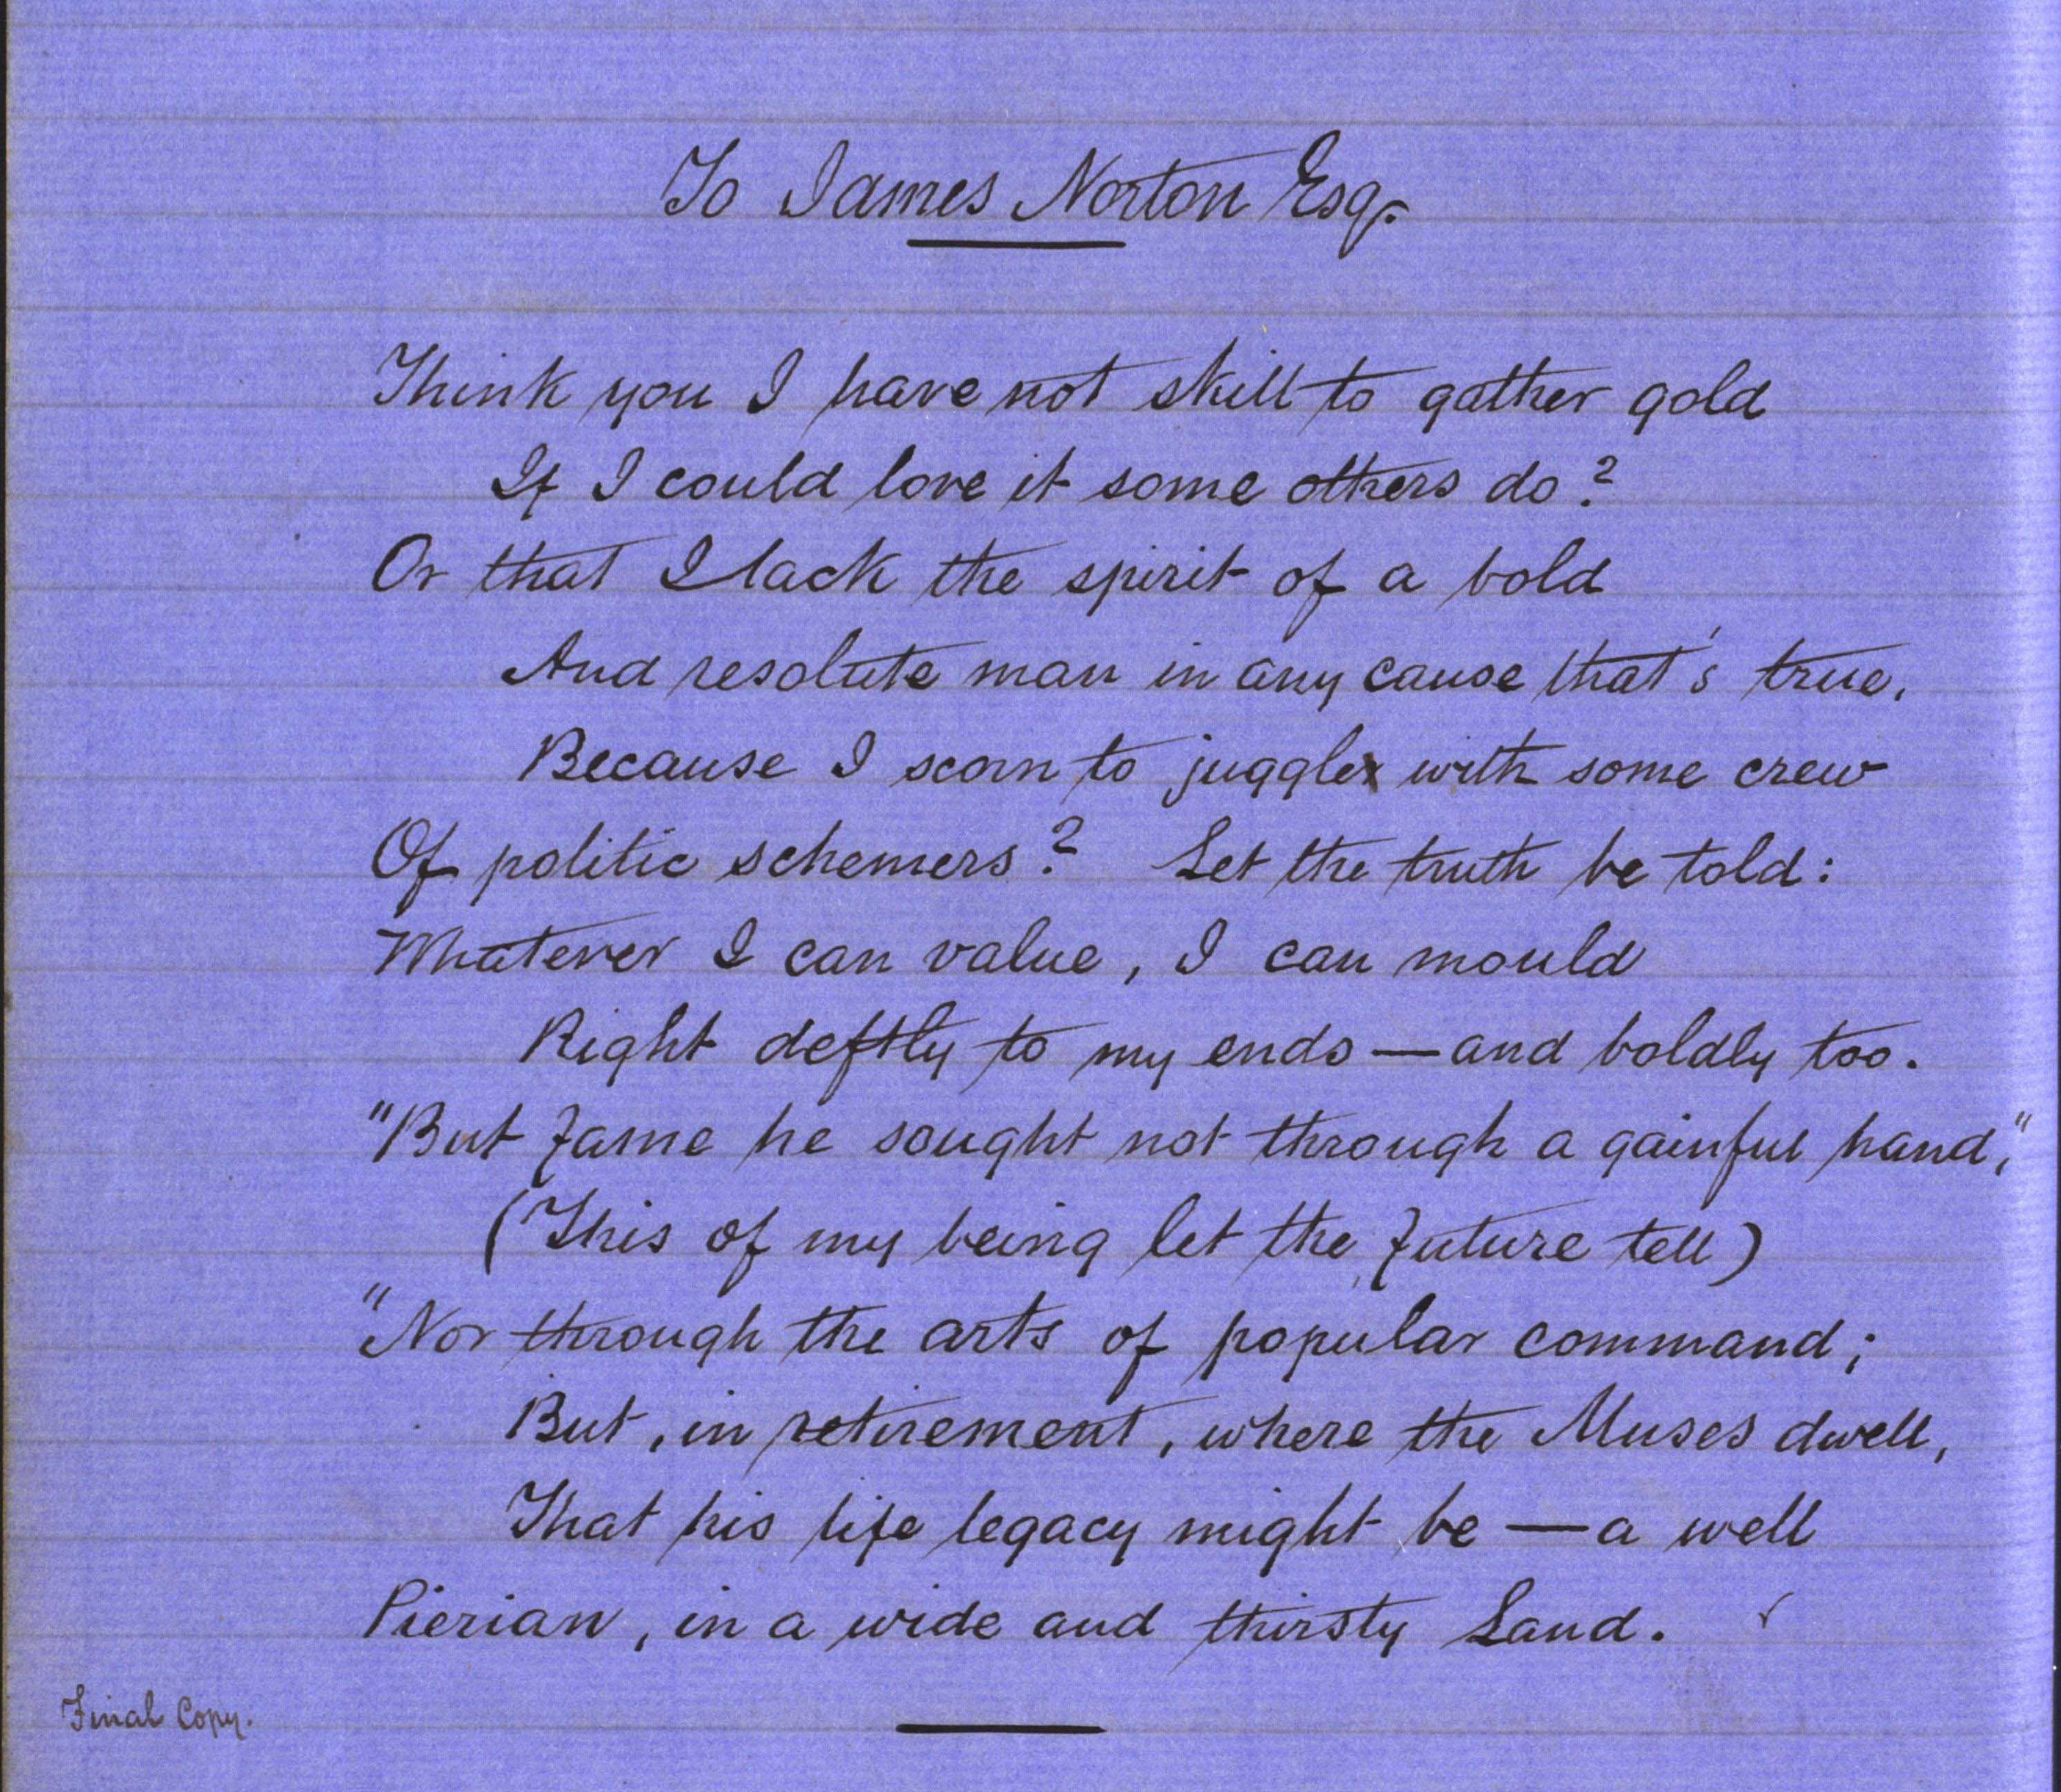 To James Norton Esq.
Think you I have not skill to gather gold
If I could love it some others do?
Or that I lack the spirit of a bold
And resolute man in any cause that's true,
Because I scorn to juggle with some crew
Of politic schemers? Let the truth be told:
Whatever I can value, I can mould
Right deftly to my ends — and boldly too.
"But Fame he sought not through a gainful hand,"
(This of my being let the Future tell)
"Nor through the arts of popular command;
But, in retirement, where the Muses dwell,
That his life legacy might be — a well
Pierian, in a wide and thirsty Land.
Final Copy.